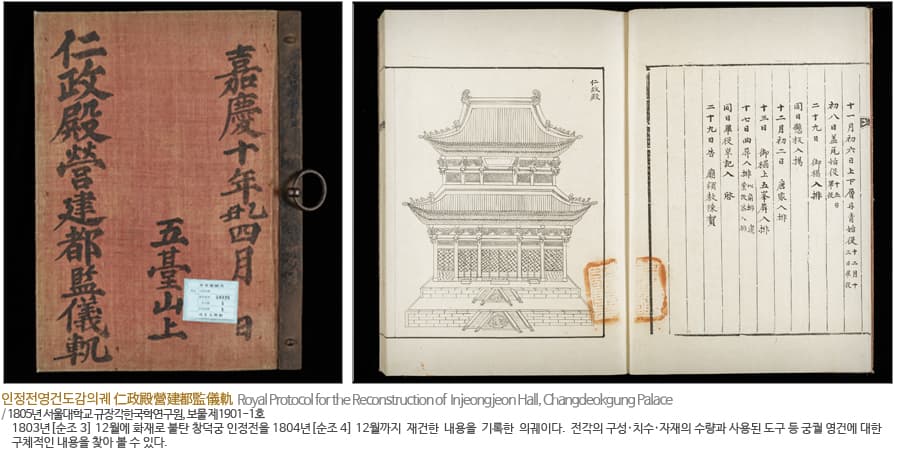 嘉慶十年乙丑四月 日
五臺山上
仁政殿營建都監儀軌
十一月初六日上下層丹靑始役
初八日蓋瓦始役
二十九日 御榻入排
同日懸板入揭
十二月初二日 唐家入排
十三日 御榻上五峯屛入排
十七日曲屛入排
同日畢役草記入 啓
二十九日告 廟頒敎陳賀
仁政殿
인정전영건도감의궤 仁政殿營建都監儀軌 Royal Protocol for the Reconstruction of Injeongjeon Hall, Changdeokgung Palace
/ 1805년 서울대학교 규장각한국학연구원, 보물 제1901-1호
1803년 [순조 3] 12월에 화재로 불탄 창덕궁 인정전을 1804년 [순조 4] 12월까지 재건한 내용을 기록한 의궤이다. 전각의 구성·치수·자재의 수량과 사용된 도구 등 궁궐 영건에 대한
구체적인 내용을 찾아 볼 수 있다.